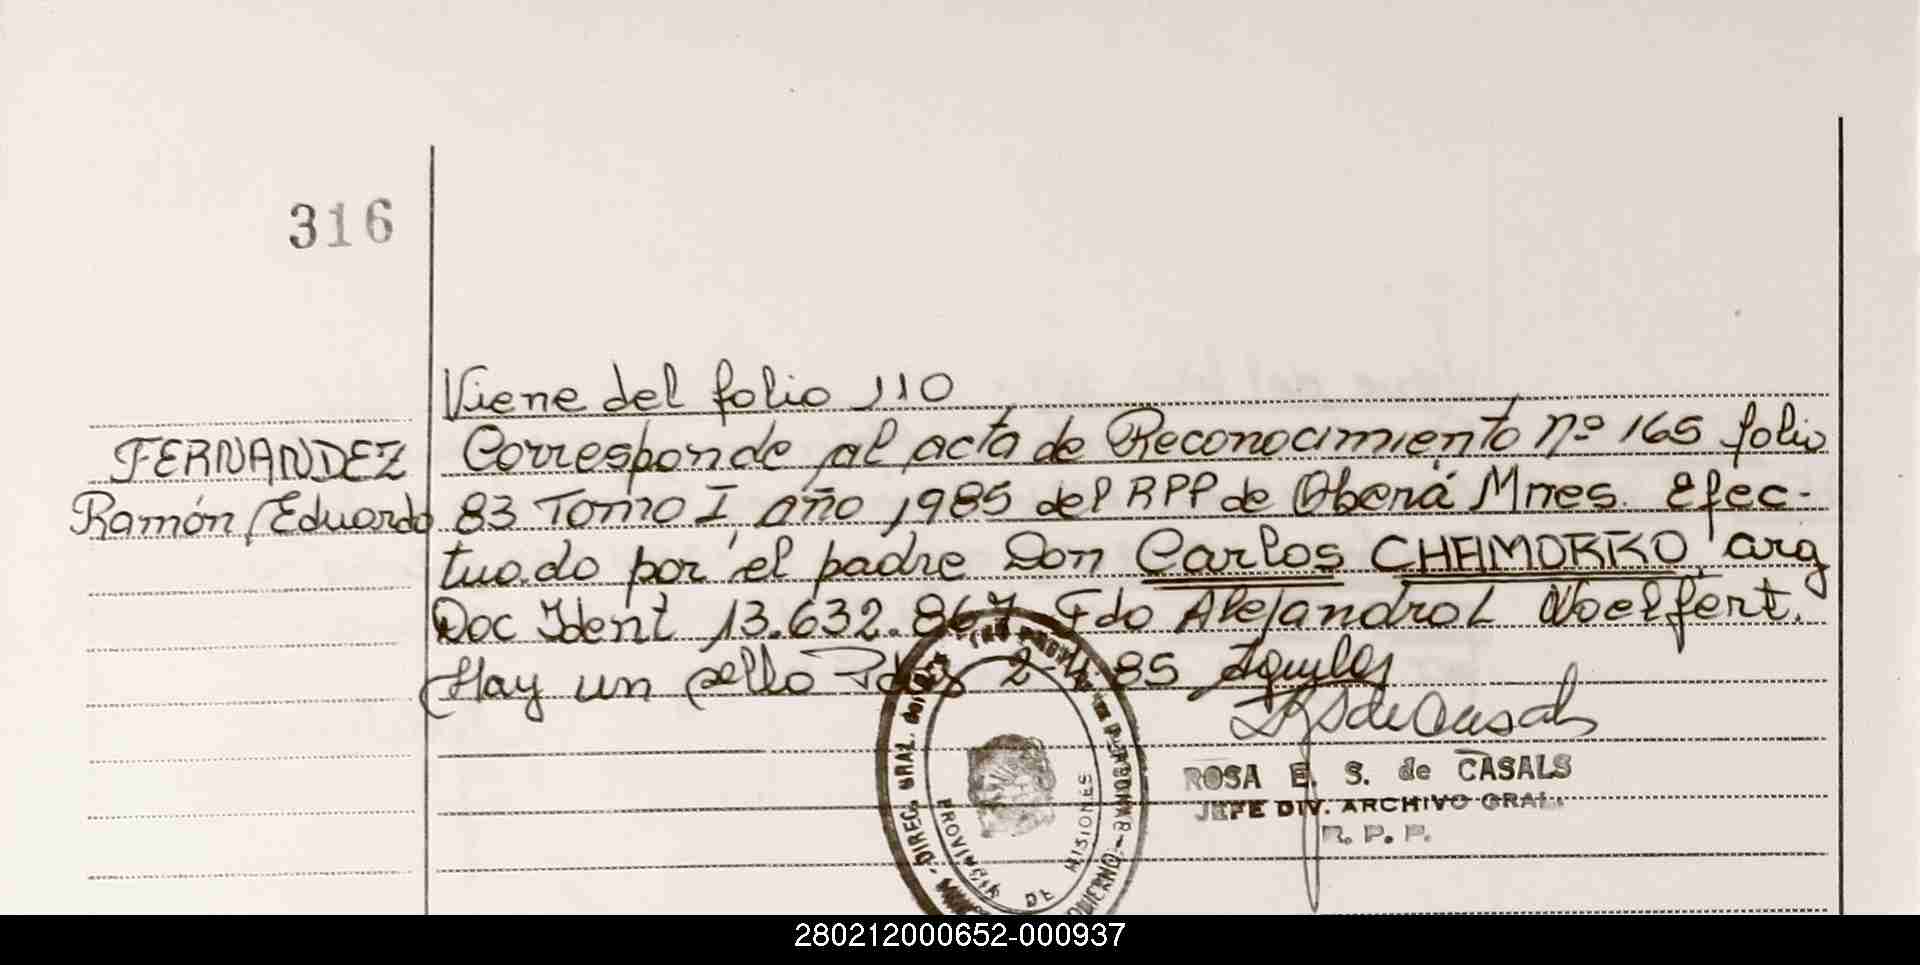 316
Viene del folio 110
FERNANDEZ
Ramón Eduardo
Corresponde al acta de Reconocimiento nº 165 folio
83 Tomo I, año 1985 del RPP de Oberá Mnes. Efec-
tuado por el padre Don Carlos CHAMORRO arg
Doc Ident 13.632.867 Fdo Alejandro L Noelfert.
Hay un sello Pdas 2-4-85
ROSA E. S. de CASALS
JEFE DIV. ARCHIVO GRAL.
R. P. P.
DIREC. GRAL.
PROVINCIA DE MISIONES
280212000652-000937